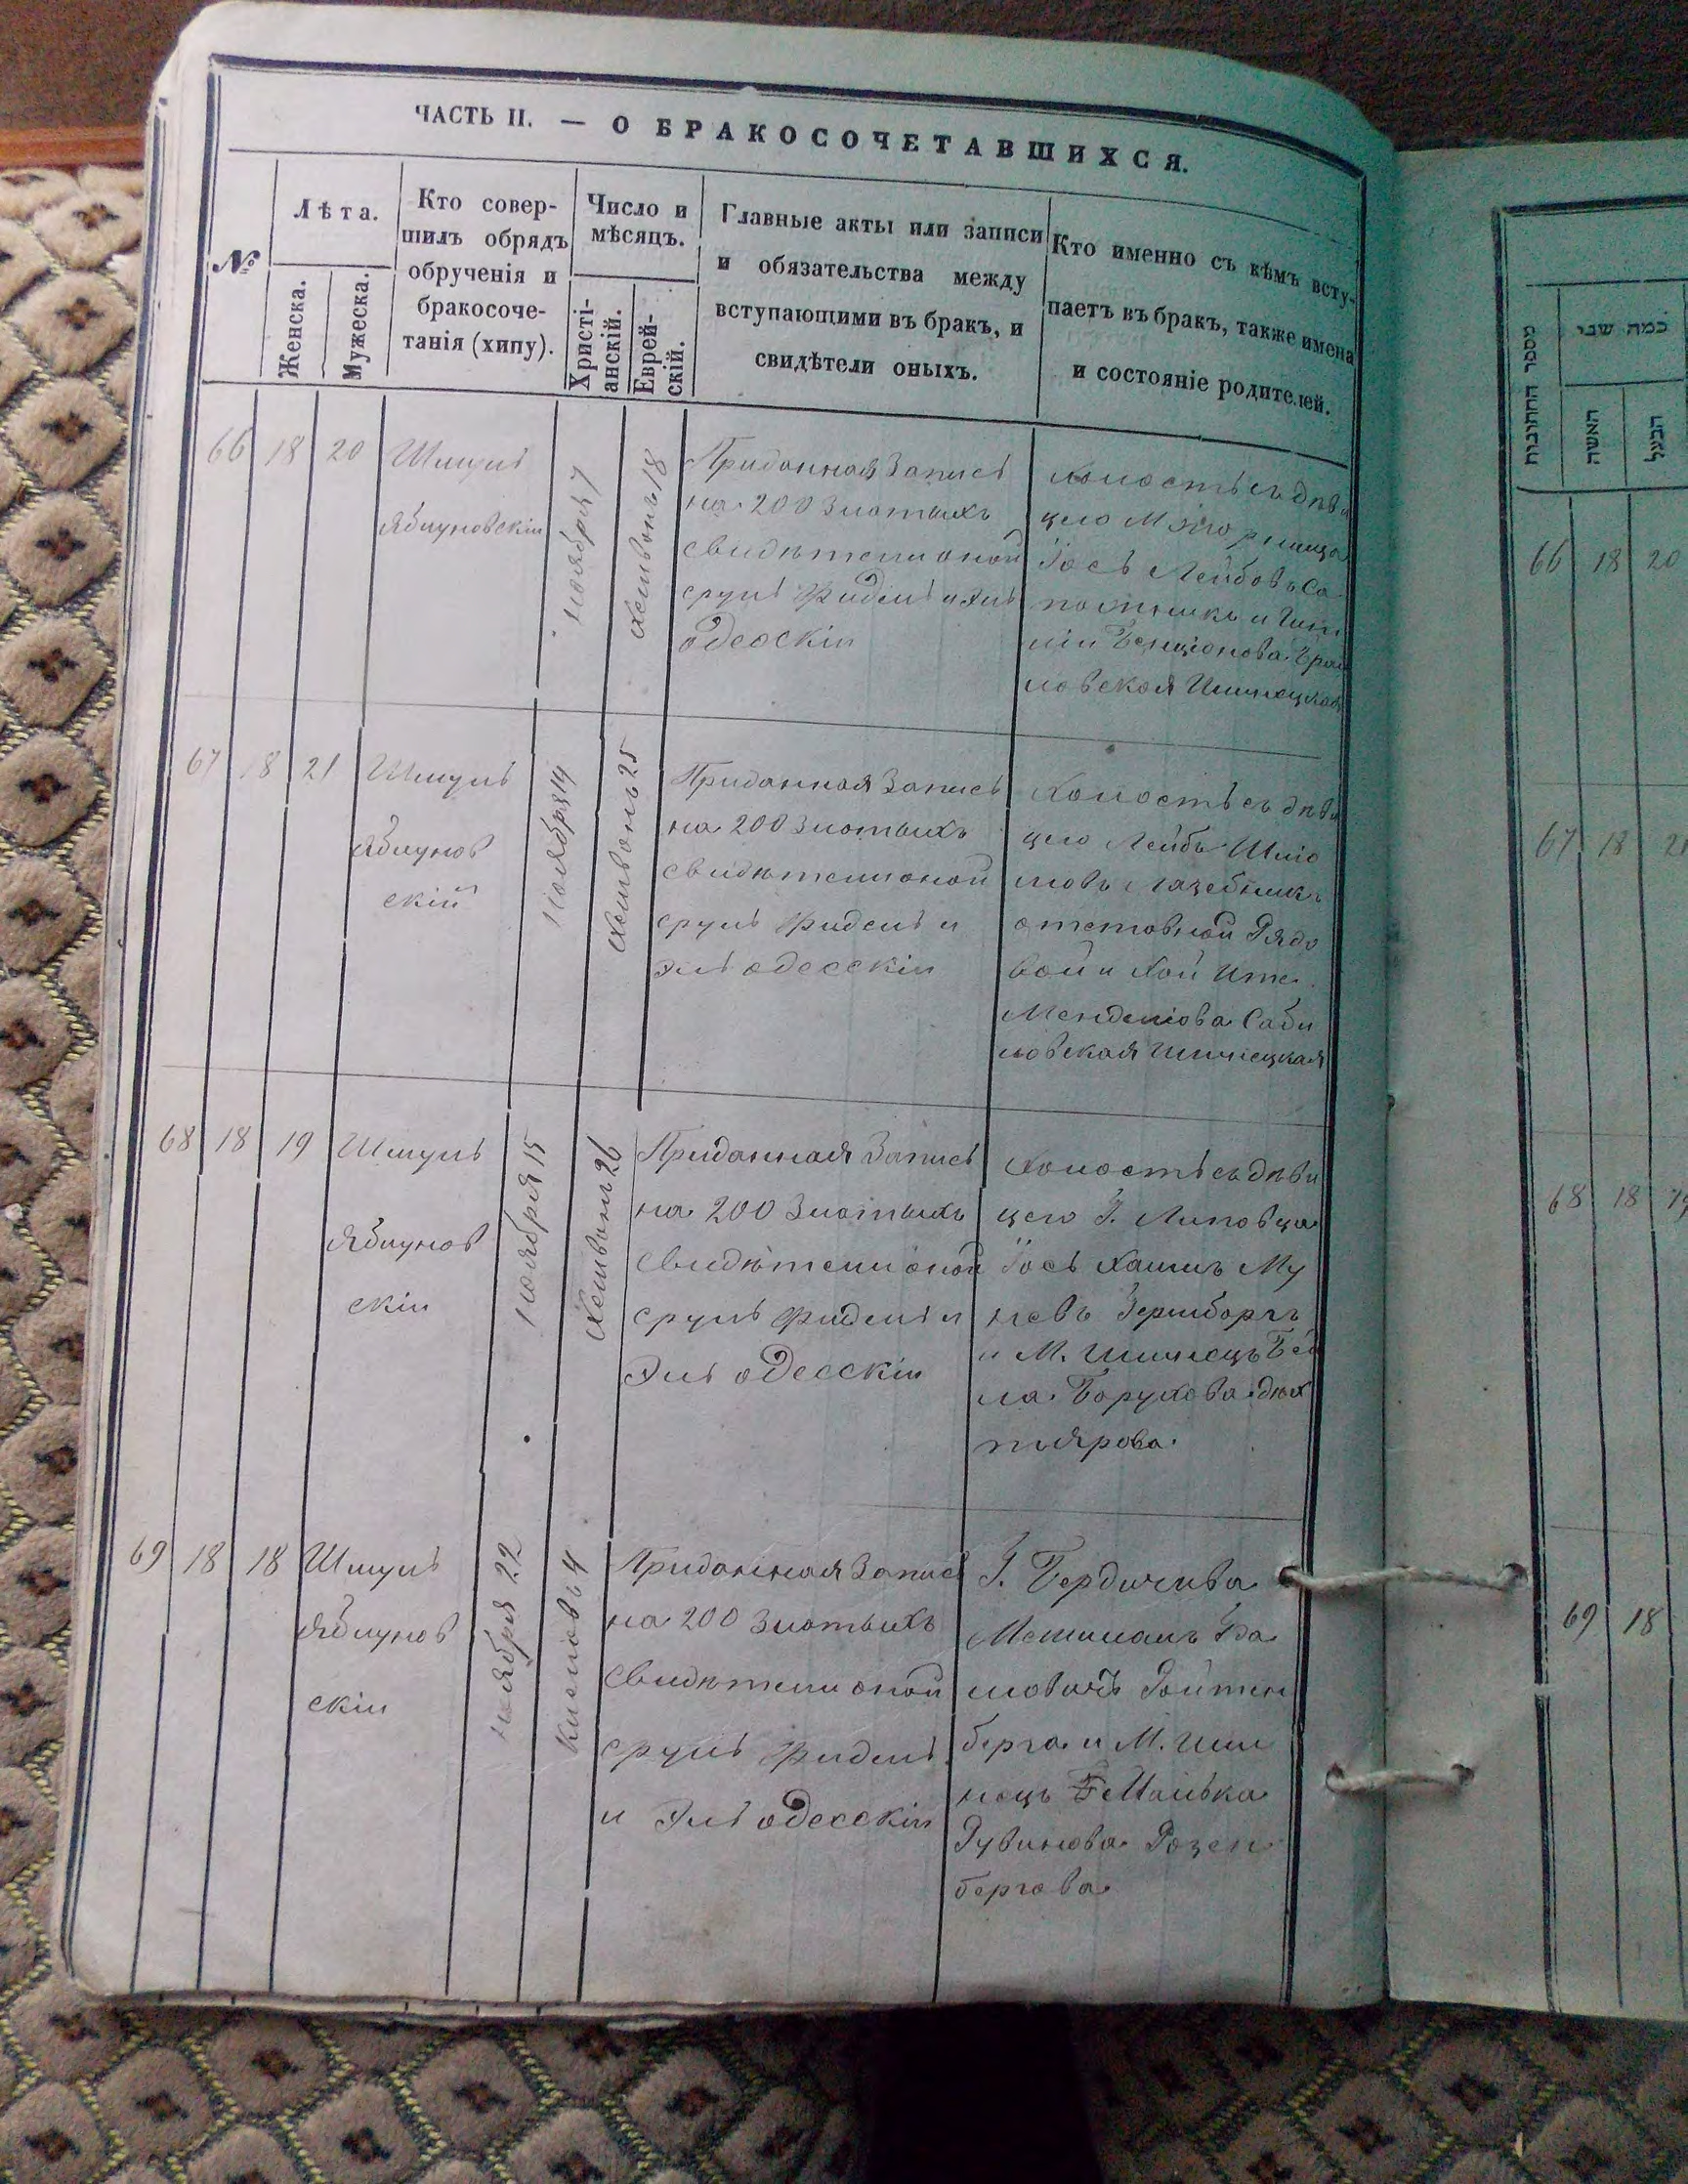 ЧАСТЬ II. — О БРАКОСОЧЕТАВШИХСЯ.
№
Лѣта.
Женска.
Мужеска.
Кто совер-
шилъ обрядъ
обрученія и
бракосоче-
танія (хипу).
Число и
мѣсяцъ.
Христі-
анскій.
Еврей-
скій.
Главные акты или записи
и обязательства между
вступающими въ бракъ, и
свидѣтели оныхъ.
Кто именно съ кѣмъ всту-
паетъ въ бракъ, также имена
и состояніе родителей.
66 18 20
Шмуль
Яблуновскіи
ноября 7
Хешвонъ 18
Приданная Запись
на 200 Злотыхъ
свидѣтели оной
сруль Фидель и Эль
одесскіи
Холостъ съ дѣви
цею
Іось Лейбовъ Са
пожникъ и
Бенціонова
ловская
67 18 21
Шмуль
Яблунов
скій
ноября 14
Хешвонъ 25
Приданная Запись
на 200 Злотыхъ
свидѣтели оной
сруль Фидель и
Эль одесскіи
Холостъ съ дѣви
цею Лейбъ Шліо
мовъ Лазебникъ
отставной Рядо
вой и Хой Ите
Менделіова Саби
ловская
68 18 19
Шмуль
Яблунов
скіи
ноября 15
Хешвонъ 26
Приданная Запись
на 200 Злотыхъ
Свидѣтели оной
сруль Фидель и
Эль одесскіи
Холостъ съ дѣви
цею Г. Липовца
Іось Хаимъ Му
невъ
и М.
ла Борухова
69 18 18
Шмуль
Яблунов
скіи
ноября 22
Кислювъ 4
Приданная Запись
на 200 Злотыхъ
Свидѣтели оной
сруль Фидель
и Эль одесскіи
Г. Бердичева
Мешиламъ
Ройтен
берга и М.
Малька
Рувинова Розен
бергова
מספר החתונות
כמה שני
האשה
הבעל
66 18 20
67 18 21
68 18 19
69 18